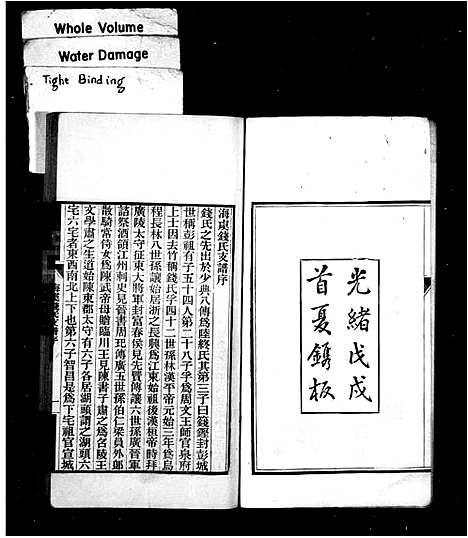 Whole Volume
Water Damage
Tight Binding
光緒戊戌
首夏鐫板
海東錢氏支譜序
錢氏之先出於少典八傳爲陸終氏其第三子曰錢鏗封彭城
世稱彭祖有子五十四人第二十八子孚爲周文王師官泉府
上士因去竹稱錢氏孚四十二世孫林漢平帝元始三年爲烏
程長林八世孫讓始居浙之長興爲江東始祖後漢桓帝時拜
廣陵太守征東大將軍封富春侯見先賢傳讓六世孫廣晉軍
諮祭酒領江州刺史見晉書周玘傳廣五世孫伯仁梁員外郞
散騎常侍女爲陳武帝母贈臨川王見陳書子肅之爲名陵王
文學肅之生道始陳東郡太守有六子各居湖頭謂之湖頭六
宅六宅者東西南北上下也第六子智昌是爲下宅祖官宣城